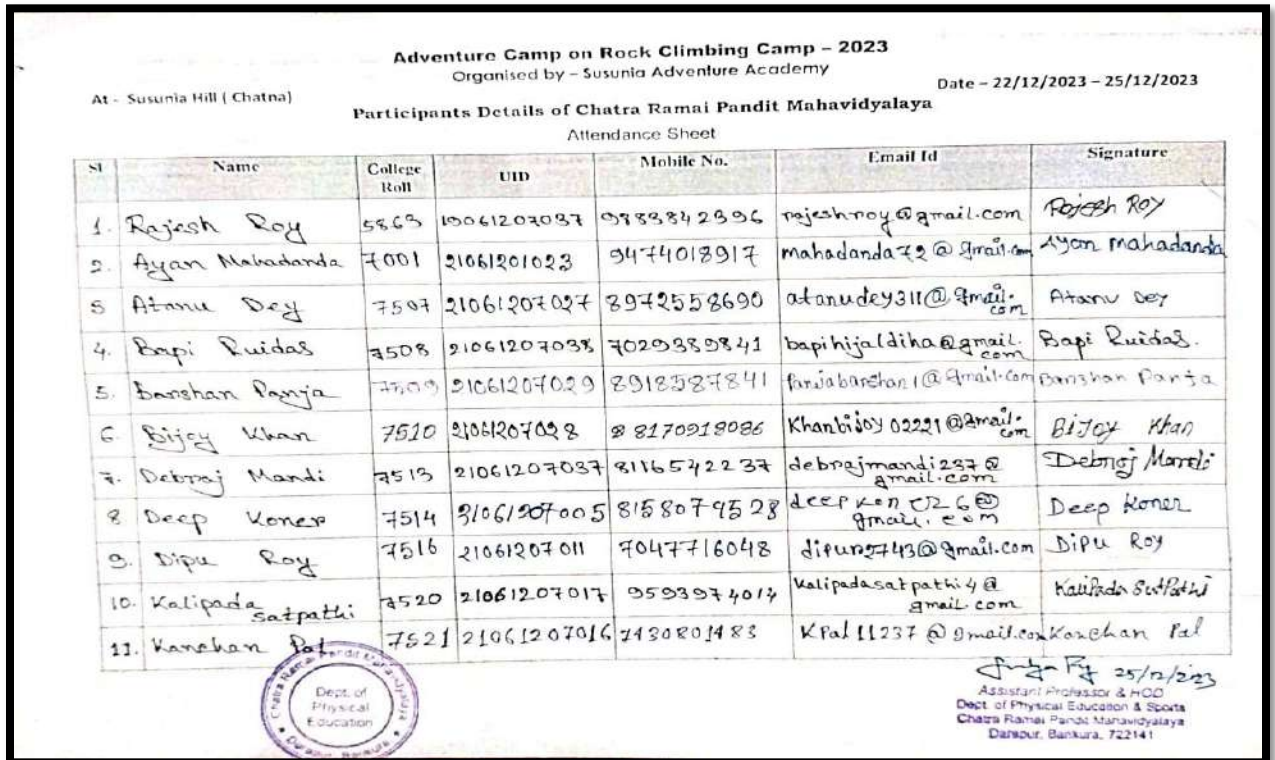 Adventure Camp on Rock Climbing Camp – 2023
Organised by – Susunia Adventure Academy
At - Susunia Hill ( Chatna)
Date – 22/12/2023 – 25/12/2023
Participants Details of Chatra Ramai Pandit Mahavidyalaya
Attendance Sheet
Sl Name College Roll UID Mobile No. Email Id Signature
1. Rajesh Roy 5863 19061207037 9883842396 rajeshroy@gmail.com Rajesh Roy
2. Ayan Mahadanda 7001 21061201023 9474018917 mahadanda72@gmail.com Ayan Mahadanda
3 Atanu Dey 7507 21061207027 8972558690 atanudey311@gmail.com Atanu Dey
4. Bapi Ruidas 7508 21061207038 7029389841 bapihijaldiha@gmail.com Bapi Ruidas.
5. Banshan Panja 7509 21061207029 8918587841 Panjabanshan1@gmail.com Banshan Panja
6. Bijoy Khan 7510 21061207028 8170918086 Khanbijoy02221@gmail.com Bijoy Khan
7. Debraj Mandi 7513 21061207037 8116542237 debrajmandi237@gmail.com Debraj Mandi
8 Deep Koner 7514 21061207005 8158079528 gmail.com Deep Koner
9. Dipu Roy 7516 21061207011 7047716048 Dipu Roy
10. Kalipada satpathi 7520 21061207017 9593974014 kalipadasatpathi4@gmail.com Kalipada Satpathi
11. Kanchan Pal 7521 21061207016 7430801483 KPal11237@gmail.com Kanchan Pal
25/12/223
Chatra Ramai Pandit Mahavidyalaya
Dept. of
Physical
Education
Darapur, Bankura
Assistant Professor & HOD
Dept. of Physical Education & Sports
Chatra Ramai Pandit Mahavidyalaya
Darapur, Bankura, 722141